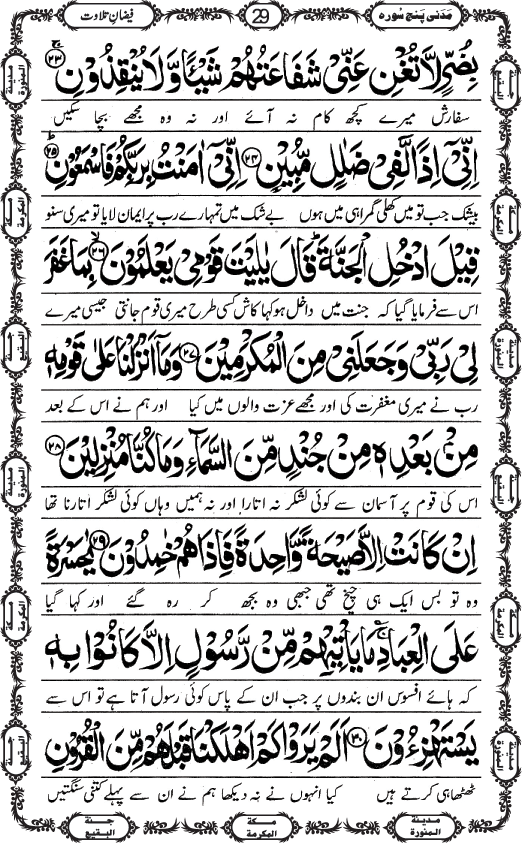 مَدَنی پَنج سُورہ
29
فیضانِ تلاوت
بِضُرٍّ لَّا تُغْنِ عَنِّیْ شَفَاعَتُهُمْ شَیْــٴًـا وَّ لَا یُنْقِذُوْنِۚ(۲۳)
سفارش میرے کچھ کام نہ آئے اور نہ وہ مجھے بچا سکیں
اِنِّیْۤ اِذًا لَّفِیْ ضَلٰلٍ مُّبِیْنٍ(۲۴) اِنِّیْۤ اٰمَنْتُ بِرَبِّكُمْ فَاسْمَعُوْنِؕ(۲۵)
بیشک جب تو میں کھلی گمراہی میں ہوں بے شک میں تمہارے رب پر ایمان لایا تو میری سنو
قِیْلَ ادْخُلِ الْجَنَّةَؕ قَالَ یٰلَیْتَ قَوْمِیْ یَعْلَمُوْنَۙ(۲۶) بِمَا غَفَرَ
اس سے فرمایا گیا کہ جنت میں داخل ہو کہا کاش کسی طرح میری قوم جانتی جیسی میرے
لِیْ رَبِّیْ وَ جَعَلَنِیْ مِنَ الْمُكْرَمِیْنَ(۲۷) وَ مَاۤ اَنْزَلْنَا عَلٰى قَوْمِهٖ
رب نے میری مغفرت کی اور مجھے عزت والوں میں کیا اور ہم نے اس کے بعد
مِنْۢ بَعْدِهٖ مِنْ جُنْدٍ مِّنَ السَّمَآءِ وَ مَا كُنَّا مُنْزِلِیْنَ(۲۸)
اس کی قوم پر آسمان سے کوئی لشکر نہ اتارا اور نہ ہمیں وہاں کوئی لشکر اتارنا تھا
اِنْ كَانَتْ اِلَّا صَیْحَةً وَّاحِدَةً فَاِذَا هُمْ خٰمِدُوْنَ(۲۹) یٰحَسْرَةً
وہ تو بس ایک ہی چیخ تھی جبھی وہ بجھ کر رہ گئے اور کہا گیا
عَلَى الْعِبَادِۣۚ مَا یَاْتِیْهِمْ مِّنْ رَّسُوْلٍ اِلَّا كَانُوْا بِهٖ
کہ ہائے افسوس ان بندوں پر جب ان کے پاس کوئی رسول آتا ہے تو اس سے
یَسْتَهْزِءُوْنَ(۳۰) اَلَمْ یَرَوْا كَمْ اَهْلَكْنَا قَبْلَهُمْ مِّنَ الْقُرُوْنِ
ٹھٹھا ہی کرتے ہیں کیا انہوں نے نہ دیکھا ہم نے ان سے پہلے کتنی سنگتیں
مدینۃ المنورۃ
مکۃ المکرمۃ
جنۃ البقیع
مدینۃ المنورۃ
مکۃ المکرمۃ
جنۃ البقیع
جنۃ البقیع
مکۃ المکرمۃ
مدینۃ المنورۃ
جنۃ البقیع
مکۃ المکرمۃ
مدینۃ المنورۃ
مدینۃ المنورۃ
مکۃ المکرمۃ
جنۃ البقیع